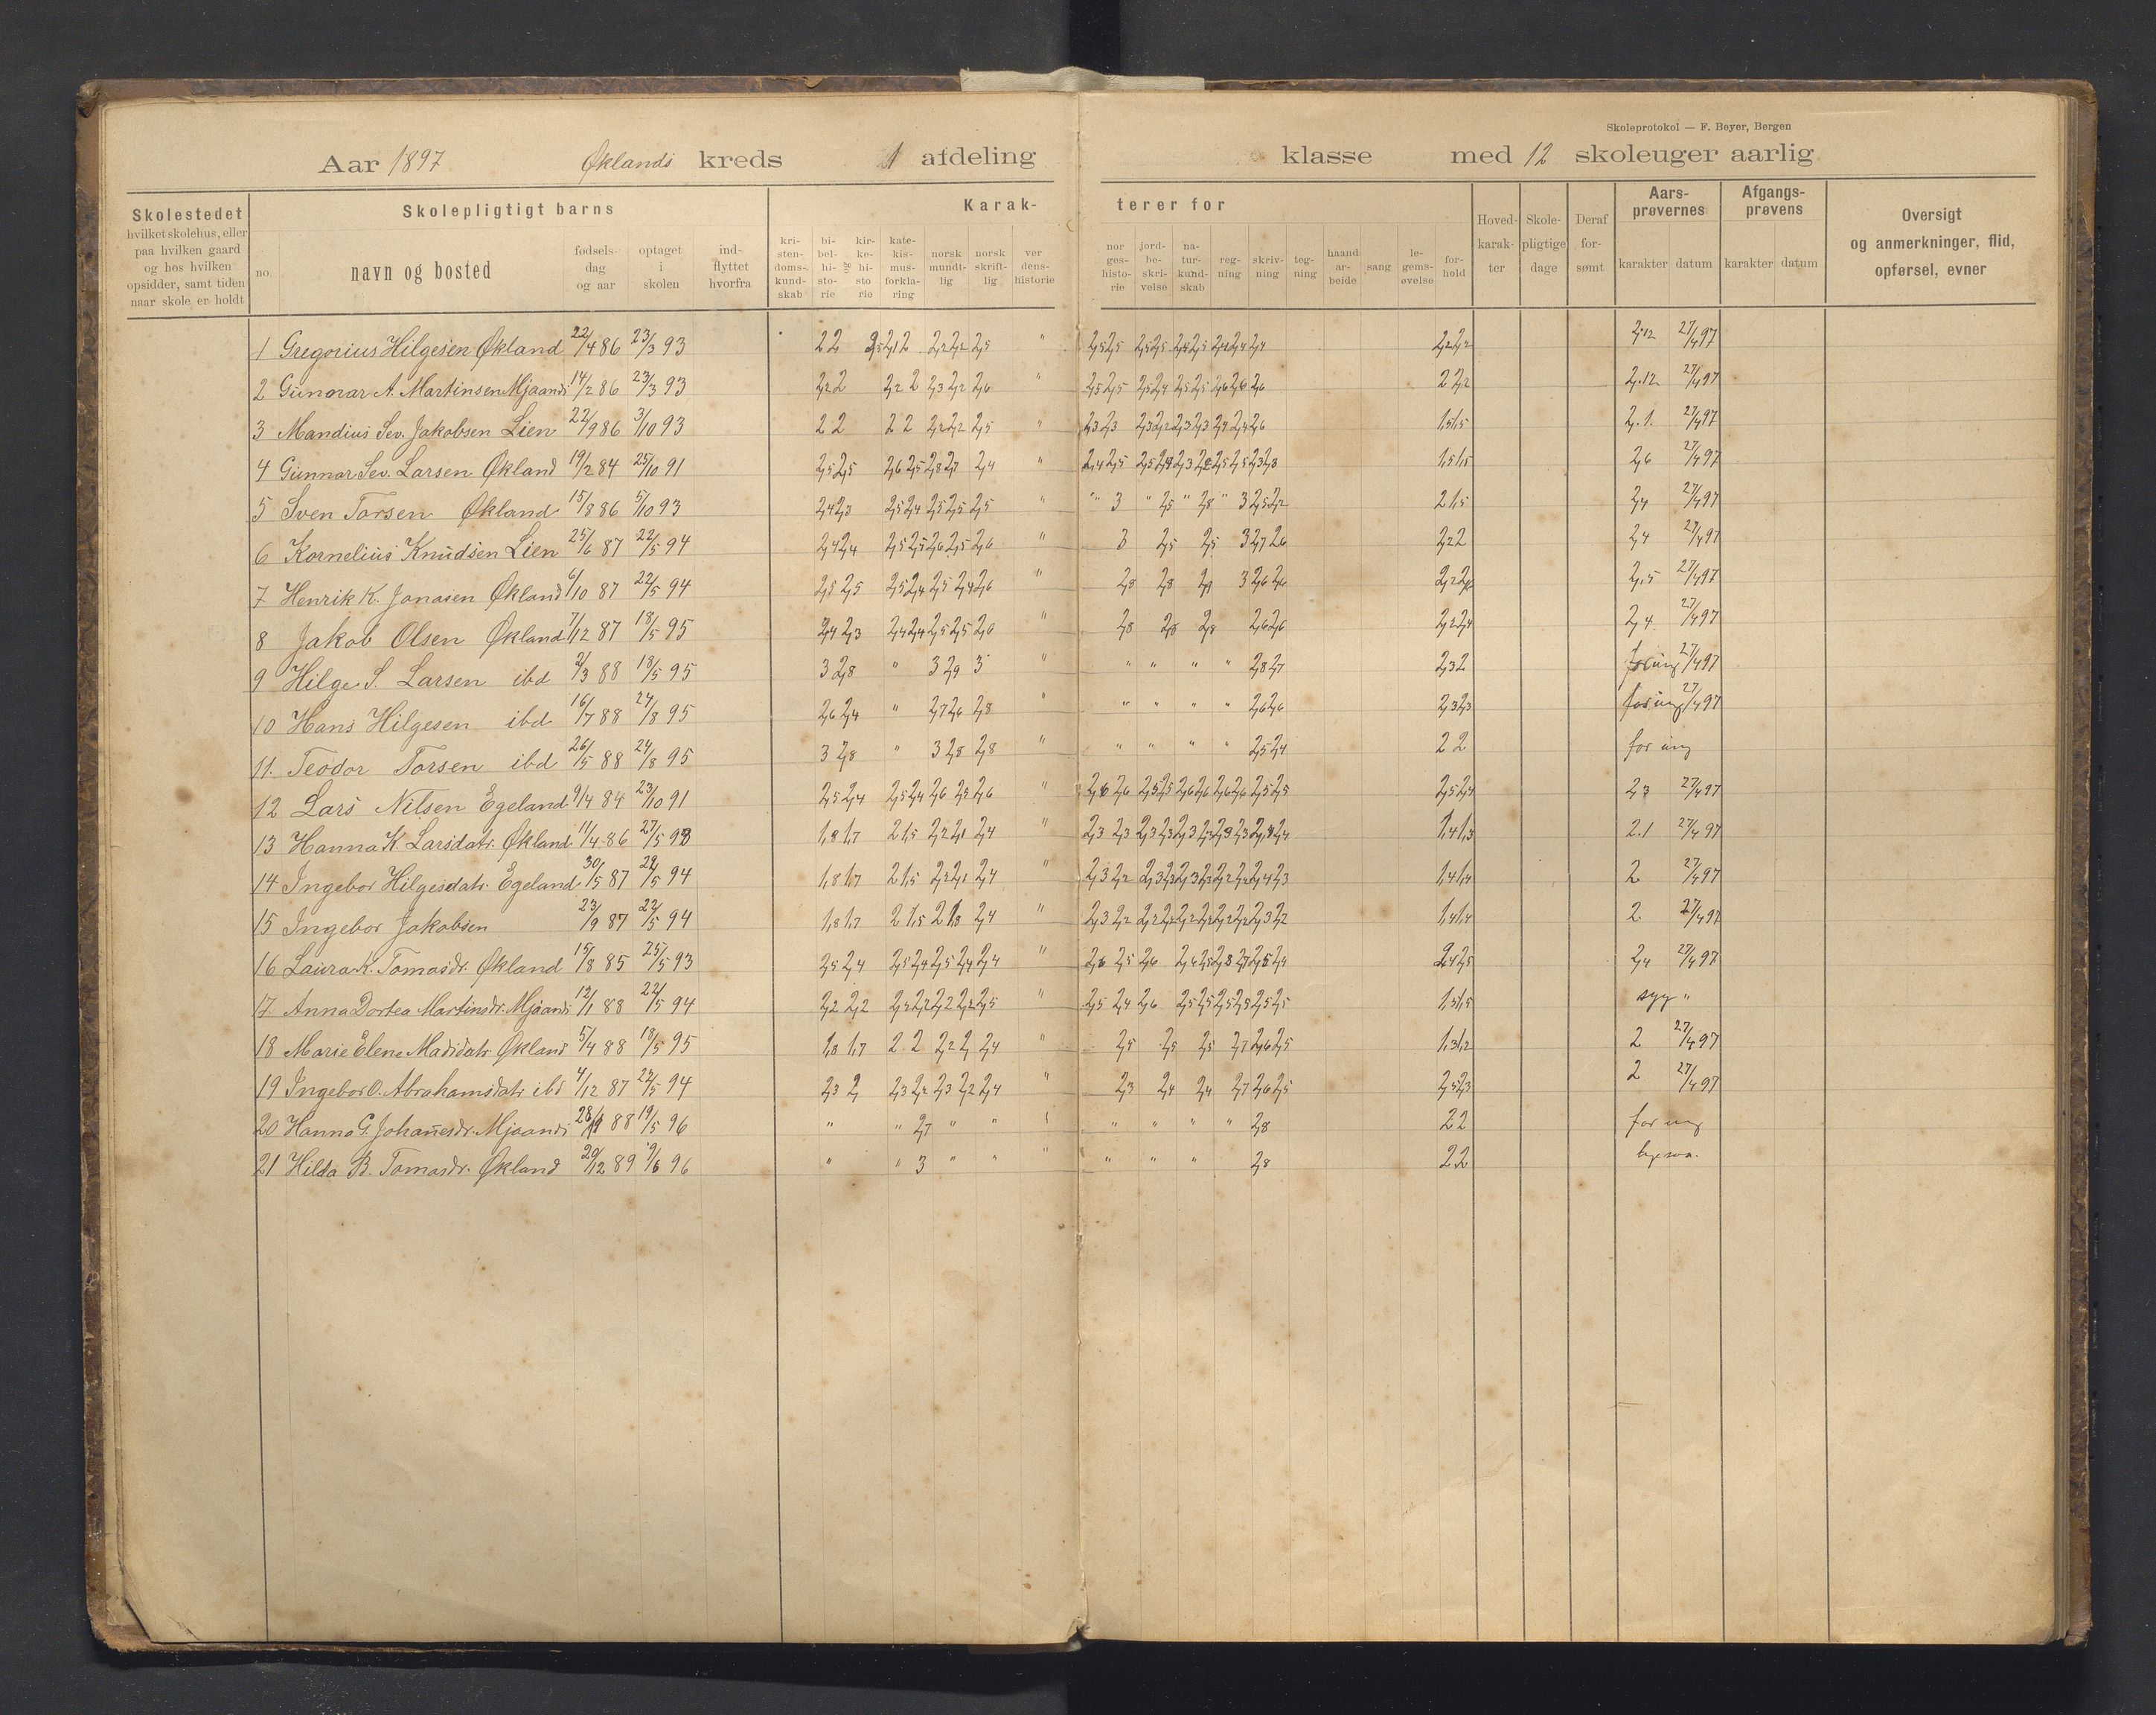 Skoleprotokol — F. Beyer, Bergen
Aar 1897 Øklands kreds 1 afdeling klasse med 12 skoleuger aarlig
Skolestedet
hvilket skolehus, eller
paa hvilken gaard
og hos hvilken
opsidder, samt tiden
naar skole er holdt
Skolepligtigt barns
no.
navn og bosted
fødsels-
dag
og aar
optaget
i
skolen
ind-
flyttet
hvorfra
Karak-
terer for
kri-
sten-
doms-
kund-
skab
bi-
bel-
hi-
sto-
rie
og
kir-
ke-
hi-
sto
rie
kate-
kis-
mus-
forkla-
ring
norsk
mundt-
lig
norsk
skrift-
lig
ver
dens-
historie
nor
ges-
histo-
rie
jord-
be-
skri-
velse
na-
tur-
kund-
skab
reg-
ning
skriv-
ning
teg-
ning
haand
ar-
beide
sang
le-
gems-
øvelse
for-
hold
Hoved-
karak-
ter
Skole-
pligtige
dage
Deraf
for-
sømt
Aars-
prøvernes
karakter datum
Afgangs-
prøvens
karakter datum
Oversigt
og anmerkninger, flid,
opførsel, evner
1 Gregorius Hilgesen Økland 22/4 86 23/3 93 2 2 2,2 2,2 2,5 " 2,5 2,5 2,5 2,5 2,2 2,2 2,12 27/4 97
2 Gunnar A. Martinsen Mjaands 14/2 86 23/3 93 2,2 2 2,2 2 2,3 2,2 2,6 " 2,5 2,5 2,5 2,4 2,5 2,5 2,6 2,6 2,6 2 2,2 2,12 27/4 97
3 Mandius Sev. Jakobsen Lien 22/9 86 3/10 93 2 2 2 2 2,2 2,2 2,5 " 2,3 2,3 2,3 2,2 2,3 2,3 2,4 2,4 2,6 1,5 1,5 2.1. 27/4 97
4 Gunnar Sev. Larsen Økland 19/2 84 25/10 91 2,5 2,5 2,6 2,5 2,8 2,7 2,4 " 2,4 2,5 1,5 1,5 2,6 27/4 97
5 Sven Torsen Økland 15/8 86 5/10 93 2,4 2,3 2,5 2,4 2,5 2,5 2,5 " " 3 " 2,5 " 2,8 " 3 2,5 2,2 2 1,5 2,4 27/4 97
6 Kornelius Knudsen Lien 25/6 87 22/5 94 2,4 2,4 2,5 2,5 2,6 2,5 2,6 " 3 2,5 2,5 3 2,7 2,6 2,2 2 2,4 27/4 97
7 Henrik K. Jonasen Økland 6/10 87 22/5 94 2,5 2,5 2,5 2,4 2,5 2,4 2,6 " 2,8 2,8 2,7 3 2,6 2,6 2,5 27/4 97
8 Jakob Olsen Økland 7/12 87 18/5 95 2,4 2,3 2,4 2,4 2,5 2,5 2,6 " 2,8 2,8 2,8 2,6 2,6 2,2 2,4 2,4 27/4 97
9 Hilge S. Larsen ibd 2/3 88 18/5 95 3 2,8 " 3 2,9 3 " " " " " 2,8 2,7 2,3 2 for ung 27/4 97
10 Hans Hilgesen ibd 16/7 88 24/8 95 2,6 2,4 " 2,7 2,6 2,8 " " " " " 2,6 2,6 2,3 2,3 for ung 27/4 97
11. Teodor Torsen ibd 26/5 88 24/8 95 3 2,8 " 3 2,8 2,8 " " " " " 2,5 2,4 2 2 for ung
12 Lars Nilsen Egeland 9/4 84 23/10 91 2,5 2,4 2,5 2,4 2,6 2,5 2,6 " 2,6 2,6 2,5 2,5 2,6 2,6 2,6 2,6 2,5 2,5 2,5 2,4 2,3 27/4 97
13 Hanna K. Larsdatr. Økland 11/4 86 27/5 93 1,8 1,7 2 1,5 2,2 2,1 2,4 " 2,3 2,3 2,3 2,3 2,3 2,3 2,3 2,3 2,4 2,4 1,4 1,3 2.1 27/4 97
14 Ingebor Hilgesdatr. Egeland 30/5 87 22/5 94 1,8 1,7 2 1,5 2,2 2,1 2,4 " 2,3 2,2 2,3 2,3 2,3 2,3 2,2 2,2 2,4 2,3 1,4 1,4 2 27/4 97
15 Ingebor Jakobsen 23/9 87 22/5 94 1,8 1,7 2 1,5 2 1,8 2,4 " 2,3 2,2 2,2 2,2 2,2 2,2 2,2 2,2 2,3 2,2 1,4 1,4 2. 27/4 97
16 Laura K. Tomasdr. Økland 15/8 85 25/5 93 2,5 2,4 2,5 2,4 2,5 2,4 2,4 " 2,6 2,5 2,6 2,4 2,5 2,4 27/4 97
17. Anna Dortea Martinsdr. Mjaands 12/1 88 22/5 94 2,2 2,2 2,2 2,2 2,2 2,2 2,5 " 2,5 2,4 2,6 2,5 2,5 2,5 2,5 2,5 2,5 1,5 1,5 syg "
18 Marie Elene Madsdatr Økland 5/4 88 18/5 95 1,8 1,7 2 2 2,2 2, 2,4 " 2,5 2,5 2,5 2,7 2,6 2,5 1,3 1,2 2 27/4 97
19 Ingebor O. Abrahamsdatr ibd 4/12 87 22/5 94 2,3 2, 2,3 2,2 2,3 2,2 2,4 " 2,3 2,4 2,4 2,7 2,6 2,5 2,5 2,3 2 27/4 97
20 Hanna G. Johañesdr. Mjaands 88 19/5 96 " " 2,7 " " " " " " 2,8 2 2 for ung
21 Hilda B. Tomasdr. Økland 20/12 89 9/6 96 " " 3 " " " " " " 2,8 2 2